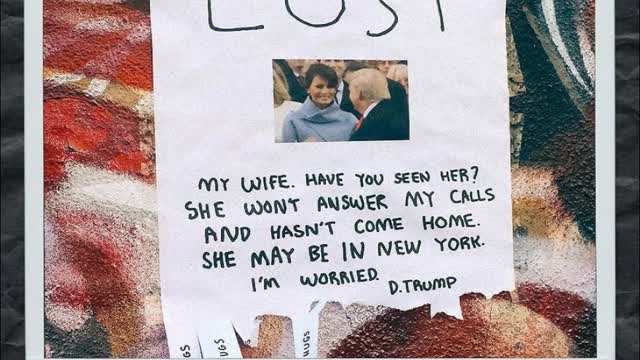 LOST
MY WIFE. HAVE YOU SEEN HER?
SHE WON'T ANSWER MY CALLS
AND HASN'T COME HOME.
SHE MAY BE IN NEW YORK.
I'M WORRIED.
D.TRUMP
HUGS